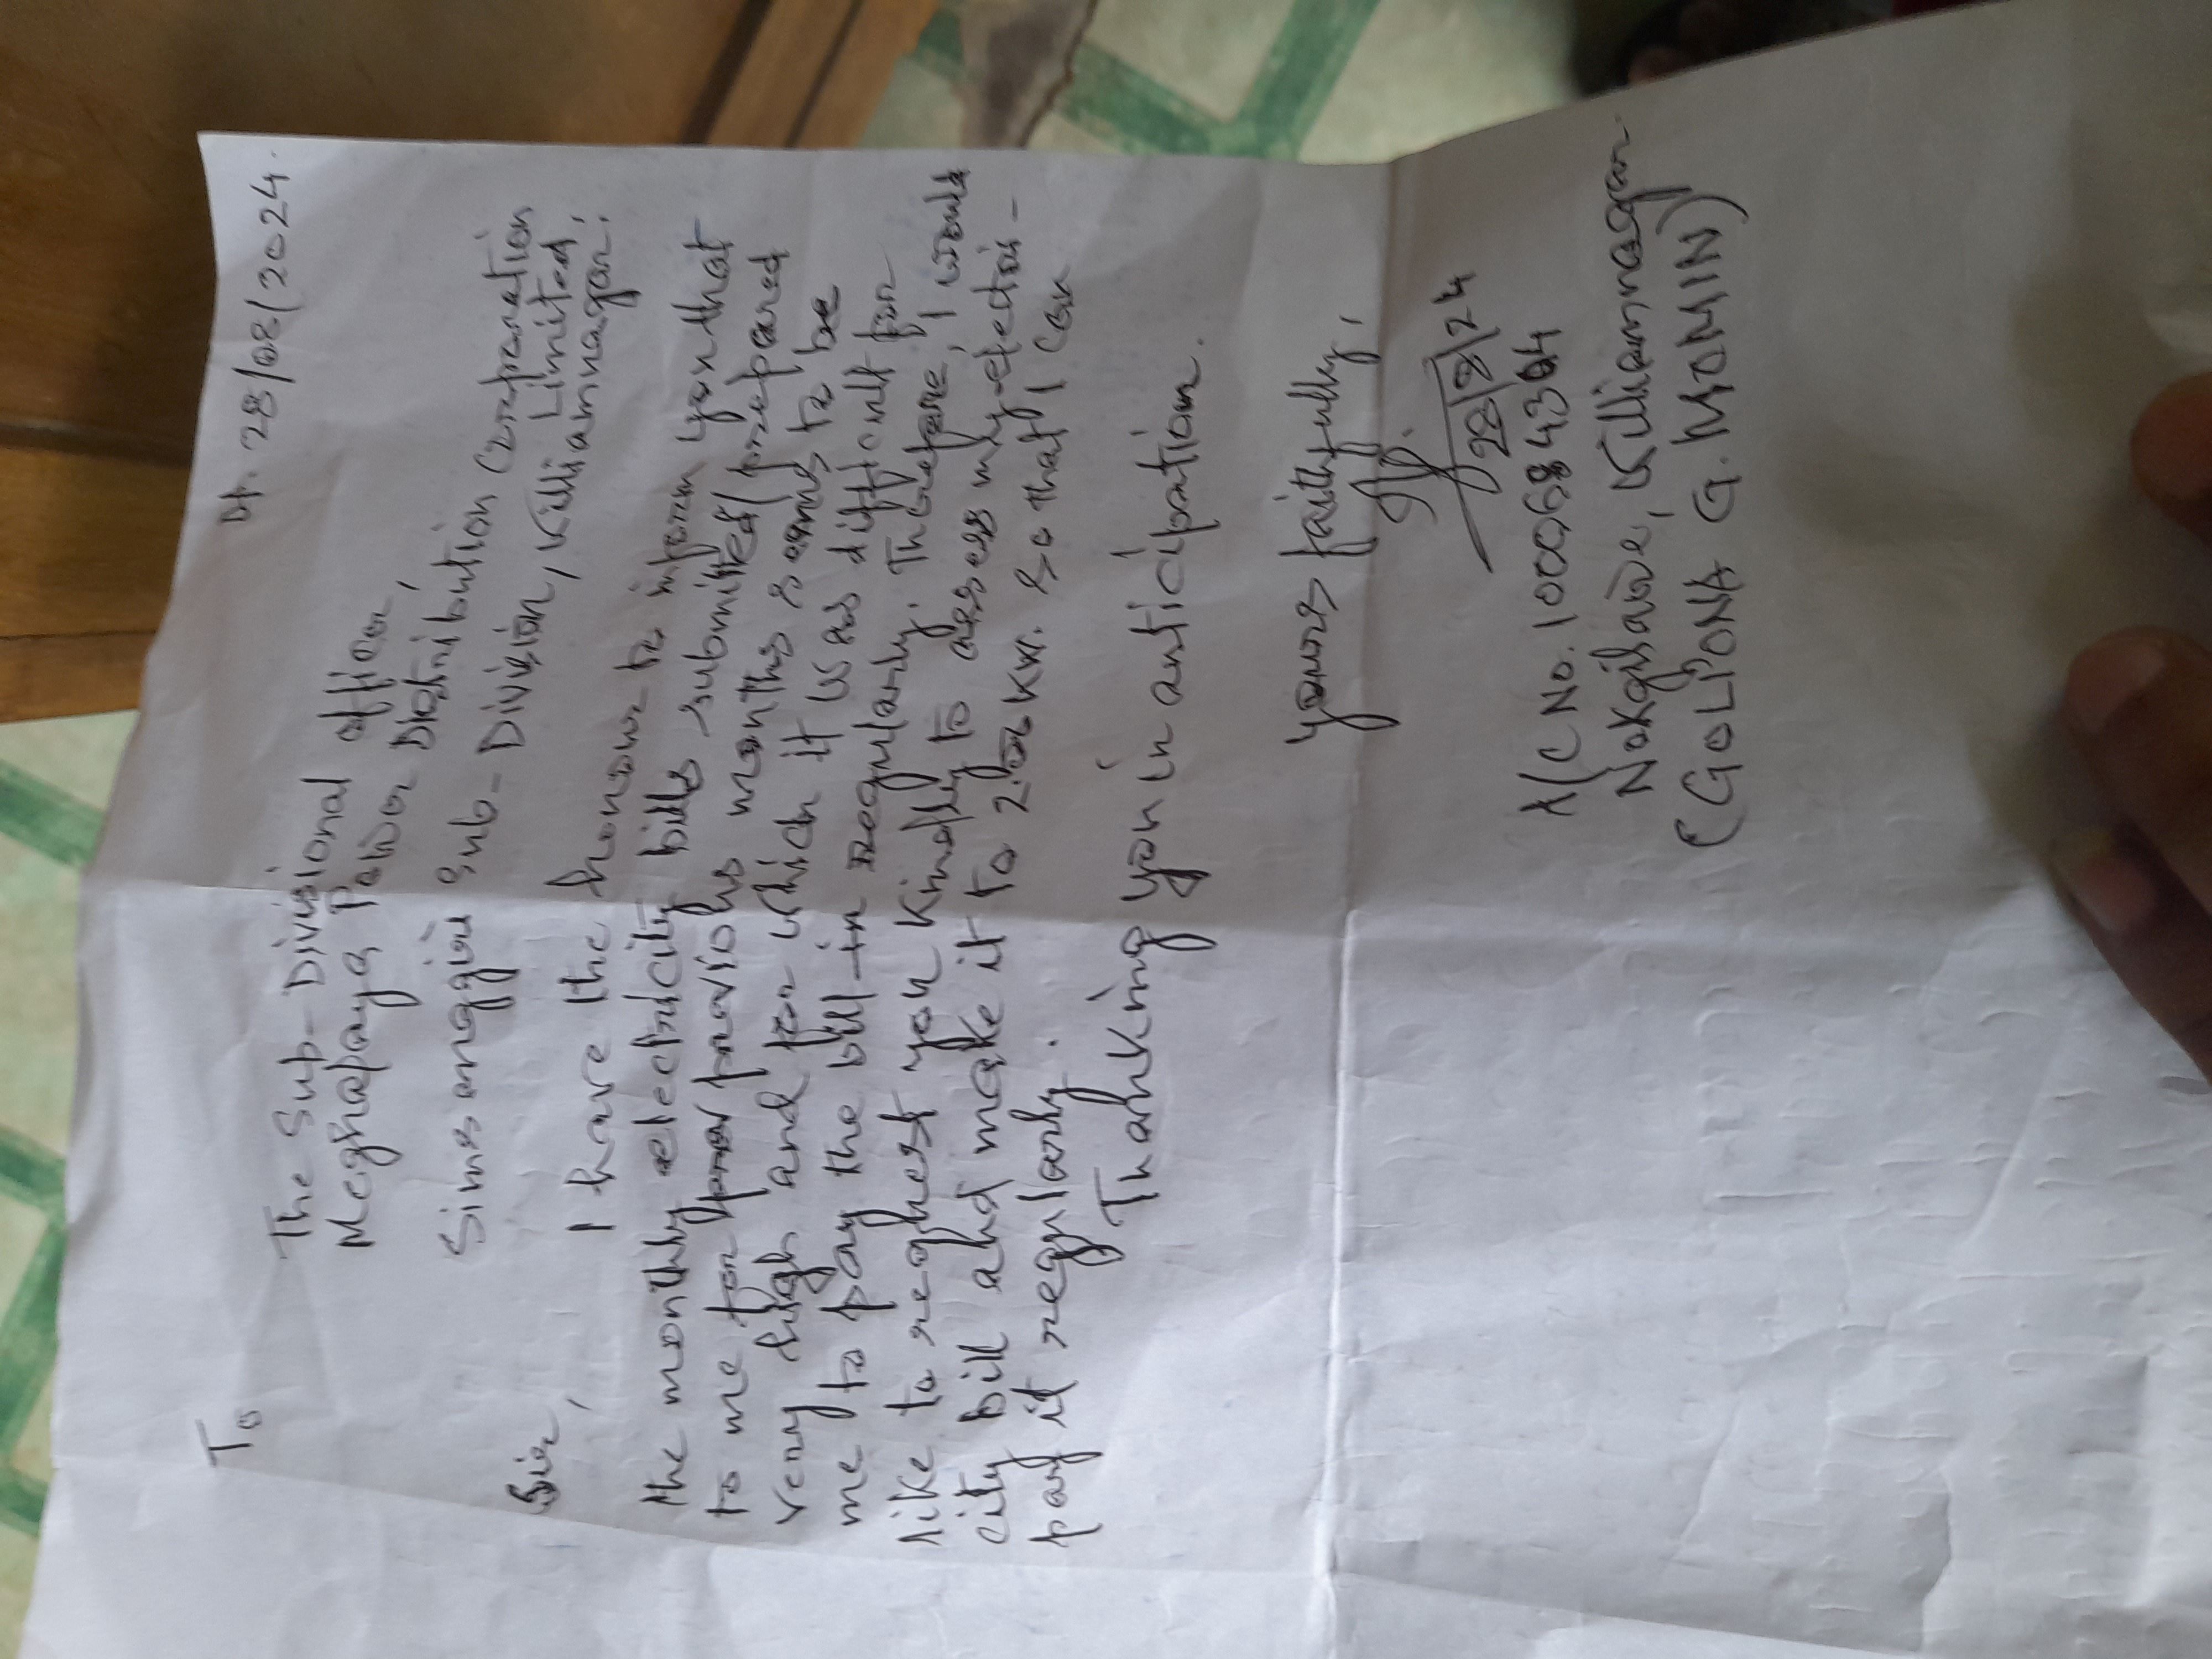 Dt. 28/08/2024.
To
The Sub-Divisional officer,
Meghalaya Power Distribution Corporation
Limited,
Simsanggiri Sub-Division, Williamnagar.
Sir,
I have the honour to inform you that
the monthly electricity bills submitted/prepared
to me for previous months seems to be
very high and for which it was difficult for
me to pay the bill in regularly. Therefore, I would
like to request you kindly to assess my electri-
city bill and make it to 2.00 KW. so that I can
pay it regularly.
Thanking you in anticipation.
yours faithfully,
28/8/24
A/C No. 1000684304
Nokgilawe, Williamnagar.
(GOLIONA G. MOMIN)